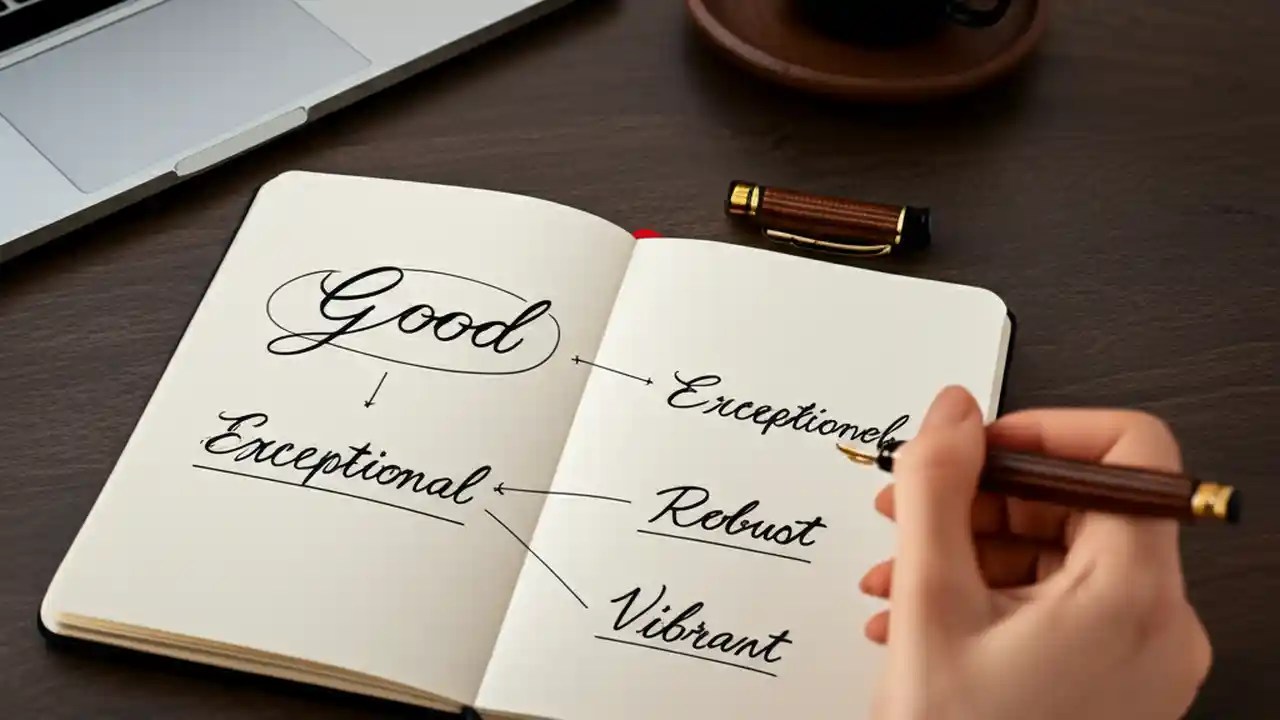 Good
Exceptional
Exceptional
Robust
Vibrant